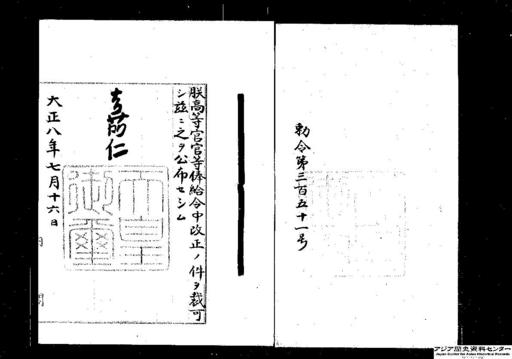 勅令第三百五十一号
朕高等官官等俸給令中改正ノ件ヲ裁可
シ茲ニ之ヲ公布セシム
嘉仁
天皇御璽
大正八年七月十六日
アジア歴史資料センター
Japan Center for Asian Historical Records